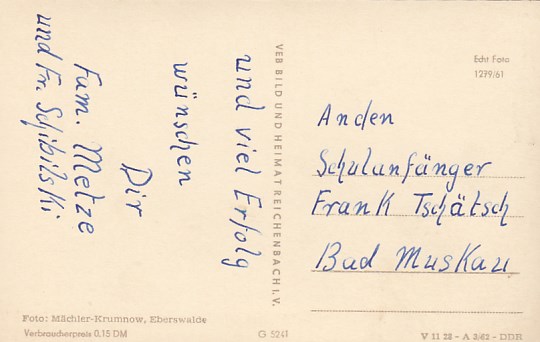 und viel Erfolg
wünschen
Dir
Fam. Metze
und Fr. Schibilski
VEB BILD UND HEIMAT REICHENBACH I. V.
Echt Foto
1279/61
Anden
Schulanfänger
Frank Tschätsch
Bad Muskau
Foto: Mächler-Krumnow, Eberswalde
Verbraucherpreis 0,15 DM
G 5241
V 11 28 - A 3/62 - DDR